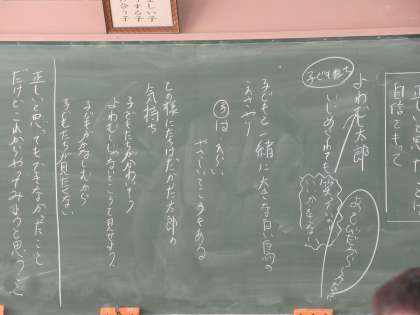 正しい子
する子
合う子
正しいと思ったことは
自信をもって
子ども達
よわむし太郎
いじめられても
いかえさない
子どもと一緒に大きな白い鳥の
えさやり
③は
やさしい
との様に立ちはだかった太郎の
気持ち
子どもたちがかわいそう
よわむしじゃないところを見せよう
子どもがかなしむから
子どもたちが見たくない
正しいと思ってもできなかったこと
だけどこれからやってみようと思うこと